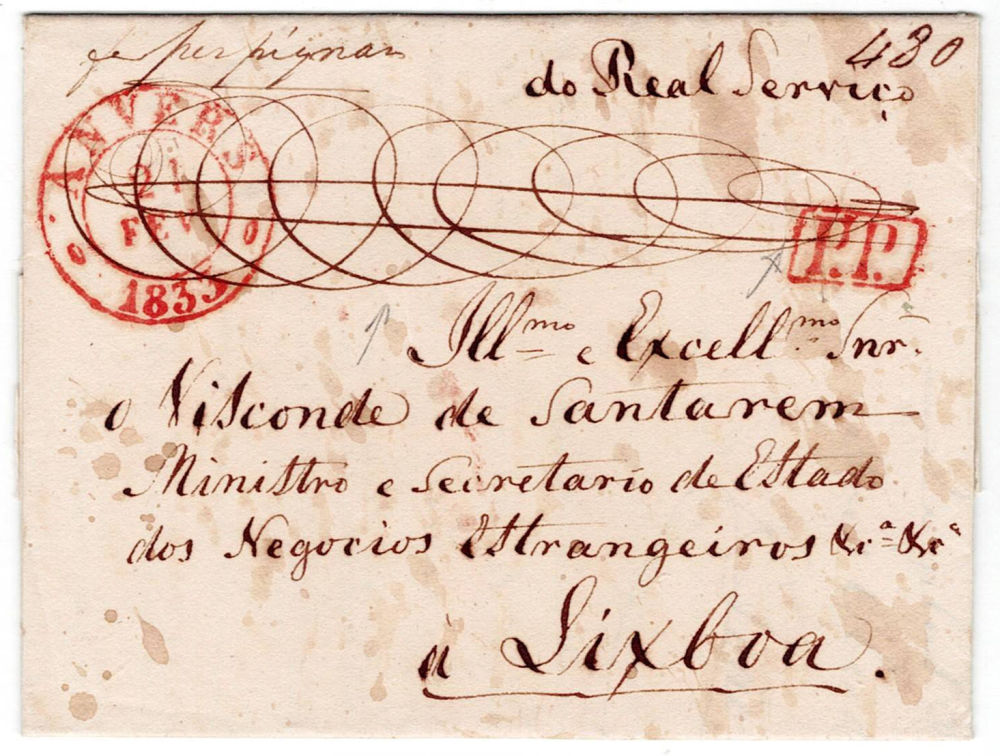 perpignan
480
do Real Serviço
ANVERS
21
FEV
1833
P.P.
Ill.mo e Excell.mo Snr.
o Visconde de Santarem
Ministro e Secretario de Estado
dos Negocios Estrangeiros &c.a &c.a
á Lixboa.